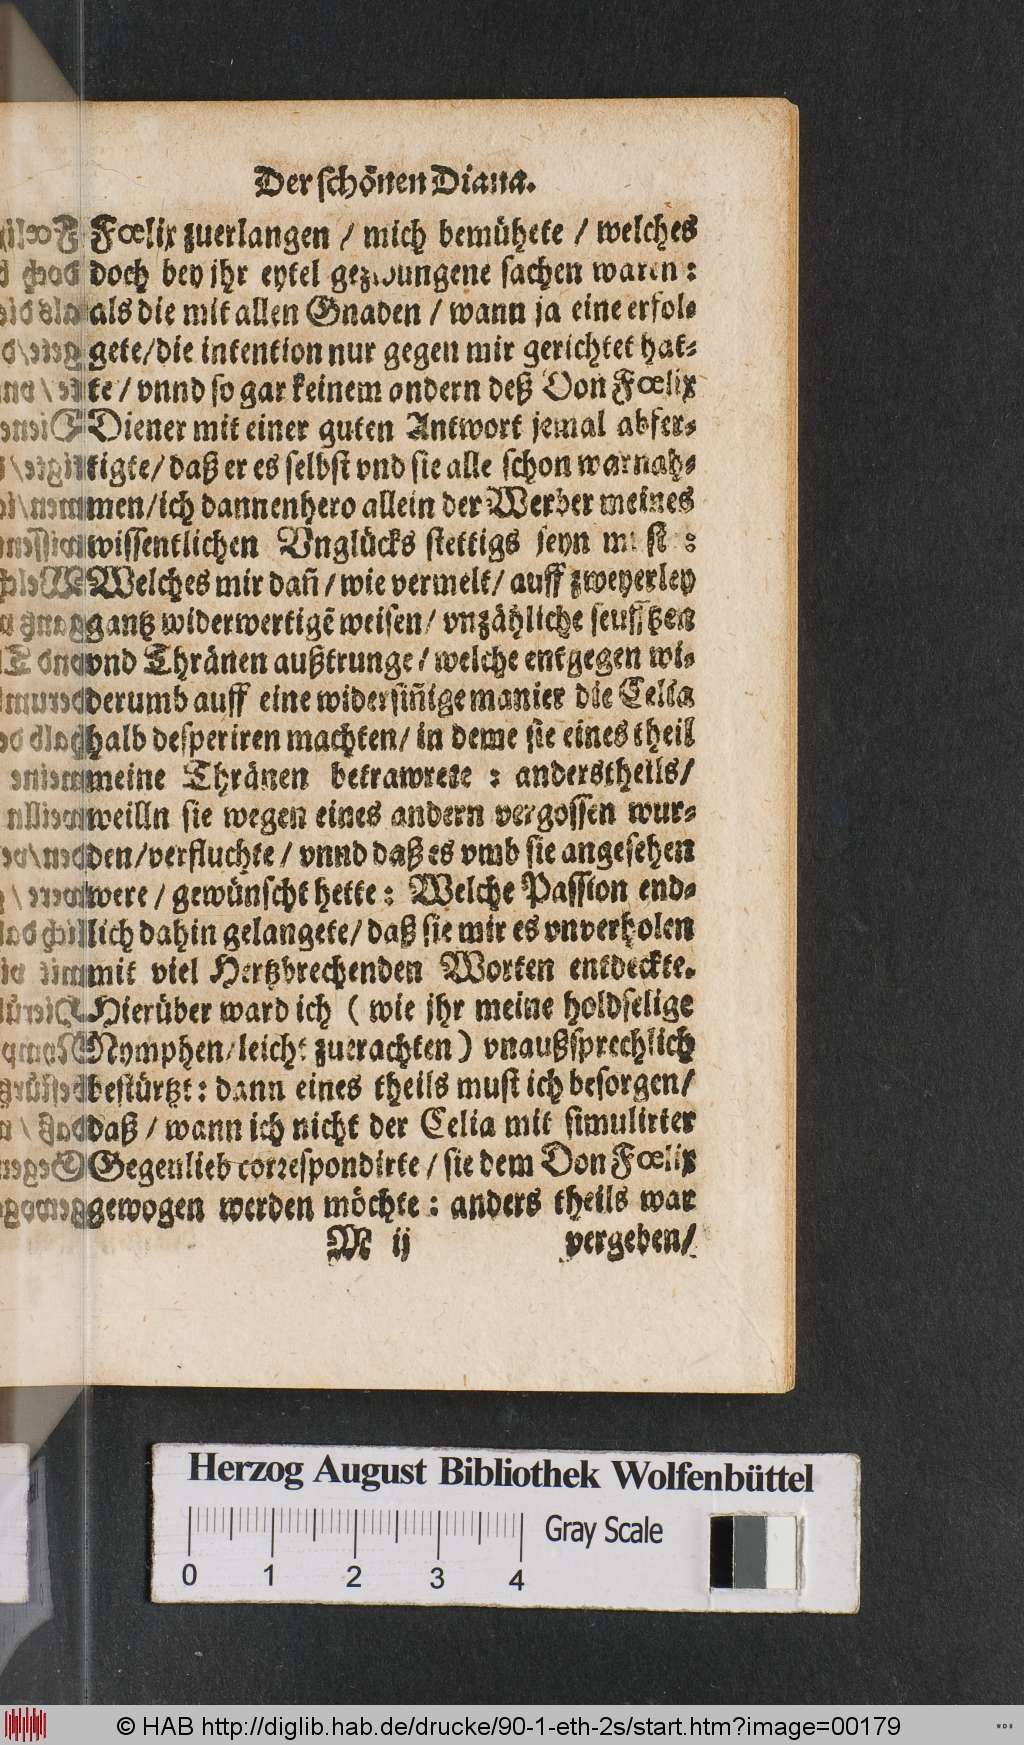 Der schönen Diana.
Fœlix zuerlangen / mich bemühete / welches
doch bey jhr eytel gezwungene sachen waren :
als die mit allen Gnaden / wann ja eine erfol-
gete/die intention nur gegen mir gerichtet hat-
te / vnnd so gar keinem andern deß Don Fœlix
Diener mit einer guten Antwort jemal abfer-
tigte/ daß er es selbst vnd sie alle schon warnah-
men/ich dannenhero allein der Werber meines
wissentlichen Vnglücks stettigs seyn must :
Welches mir dañ / wie vermelt/ auff zweyerley
gantz widerwertigẽ weisen/ vnzähliche seufftzen
vnd Thränen außtrunge/ welche entgegen wi-
derumb auff eine widersiñige manier die Celia
halb desperiren machten/ in deme sie eines theil
meine Thränen betrawrete : anderstheils/
weilln sie wegen eines andern vergossen wur-
den/verfluchte / vnnd daß es vmb sie angesehen
were / gewünscht hette : Welche Passion end-
lich dahin gelangete/ daß sie mir es vnverholen
mit viel Hertzbrechenden Worten entdeckte.
Hierüber ward ich ( wie jhr meine holdselige
Nymphen/leicht zuerachten ) vnaußsprechlich
bestürtzt : dann eines theils must ich besorgen/
daß / wann ich nicht der Celia mit simulirter
Gegenlieb correspondirte / sie dem Don Fœlix
gewogen werden möchte : anders theils war
M ij vergeben/
Herzog August Bibliothek Wolfenbüttel
Gray Scale
0 1 2 3 4
© HAB http://diglib.hab.de/drucke/90-1-eth-2s/start.htm?image=00179